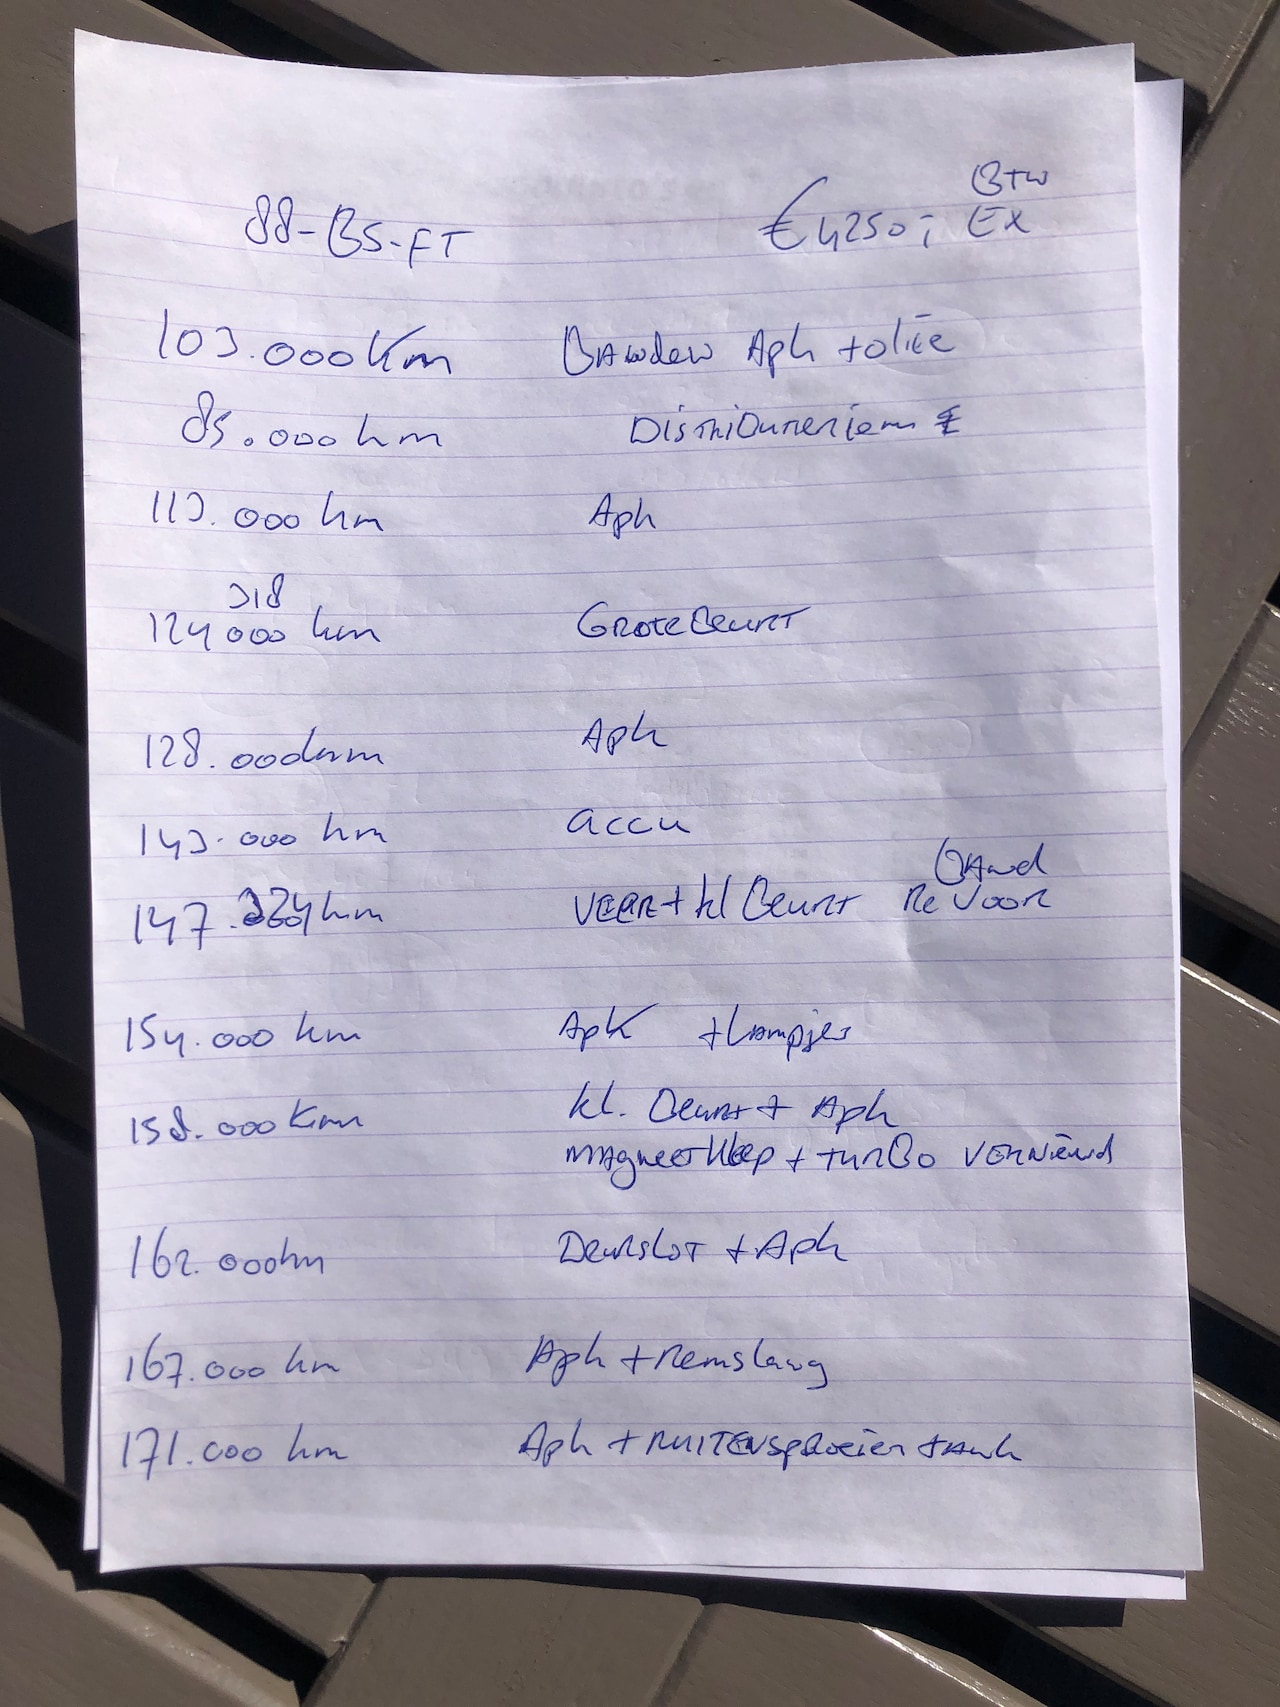 88-BS-FT €4250,- BTW EX
103.000 Km Banden Apk + olie
85.000 km Distributieriem
113.000 km Apk
318
124000 km Grote Beurt
128.000 km Apk
143.000 km accu
Band
147.324 km Veer + kl Beurt Re Voor
154.000 km Apk + Lampjes
158.000 Km kl. Beurt + Apk
magneetklep + turbo vernieuwd
162.000 km Deurslot + Apk
167.000 km Apk + Remslang
171.000 km Apk + Ruitensproeier tank